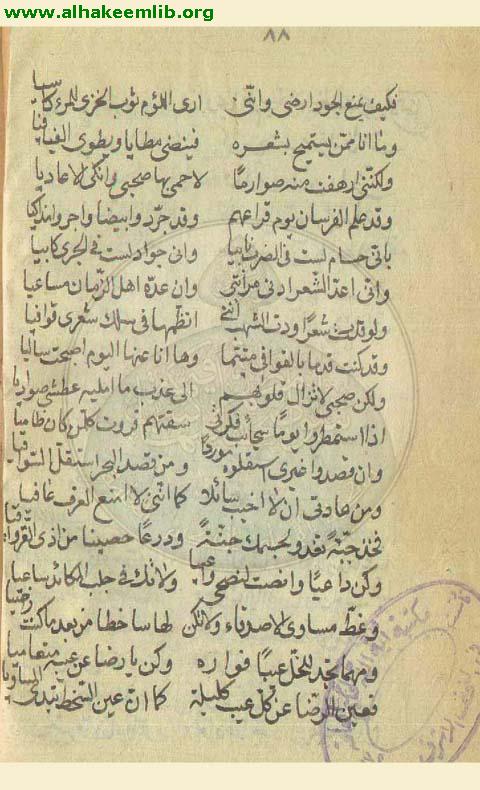 www.alhakeemlib.org
٨٨
فكيف يمنع الجود ارضى وانّنى ارى اللؤم ثوب الخزى للمرء كاسيا
وما انا ممّن يستميح بشعره فينضى مطايا ويطوى الفيافيا
ولكنّنى ارهفت منه صوارمًا لاحمى بها صحبى وانكى الاعاديا
وقد علم الفرسان يوم قراعهم وقد جرّدوا بيضا واجروا مذاكيا
بانى حسام لست فى الضرب نابيا وانى جواد لست فى الجرى كابيا
وانى اعدّ الشعر ادنى مراتبى وان عدّه اهل الزمان مساعيا
ولو قلت شعرًا ودّت الشهب انّنى انظمها فى سلك شعرى قوافيا
وقد كنت قدما بالقوافى متيّما وها انا عنها اليوم اصبحت ساليا
ولكن صحبى لا تزال قلوبهم الى عذب ما امليه عطشى صواديا
اذا استمطروا يومًا سحائب فكرتى سقتهم فروت كلّ من كان ظاميا
وان قصدوا غيرى استقلّوه موردًا ومن قصد البحر استقلّ السواقيا
ومن عادتى ان لا اخيب سائلا كما انّنى لا امنع العرف عافيا
فخذ جبّة تغدو لجسمك جنّة ودرعًا حصينا من اذى القرّ واقيا
وكن داعيًا وانصت لنصحى واعيا ولا تك فى جلب المكائد ساعيا
وغطّ مساوى لاصدقاء ولا تكن لها ساخطا من بعد ما كنت راضيا
ومهما تجد للخلّ عيبًا فواره وكن يا رضا عن عيبه متعاميا
فعين الرضا عن كلّ عيب كليلة كما انّ عين السخط تبدى المساويا